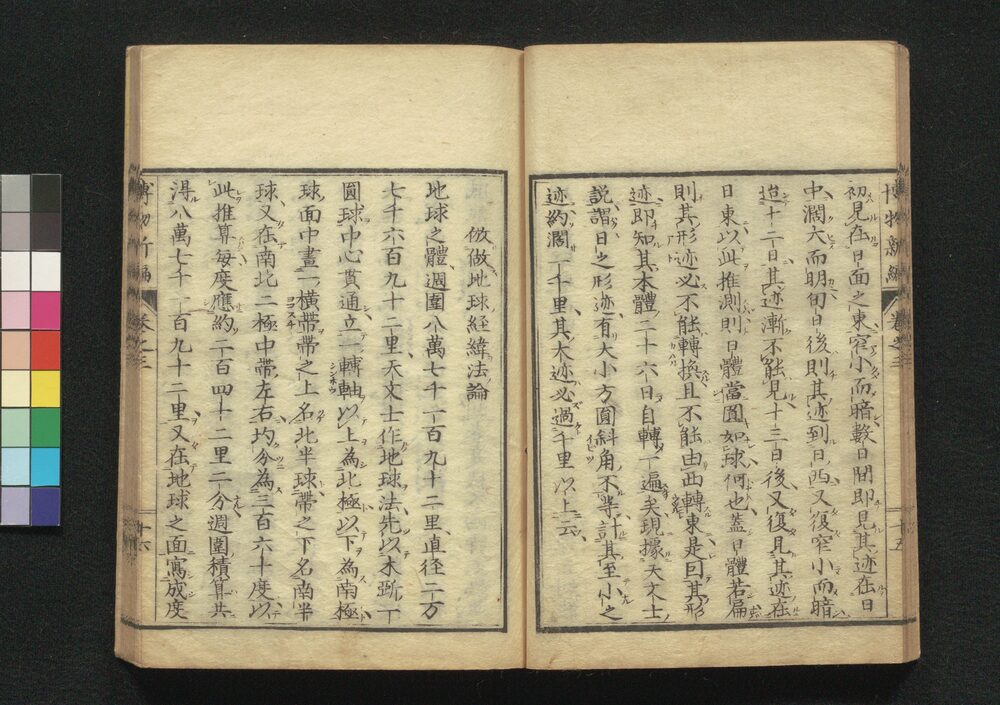 初見在日面之東窄小而暗數日間即見其迹在日
中濶大而明旬日後則其迹到日西又復窄小而暗
迨十二日其迹漸不能見十三日後又復見其迹在
日東以此推測則日體當圓如球何也蓋日體若扁
則其形迹必不能轉換且不能由西轉東是曰其形
迹即知其本體二十六日自轉一遍矣現據天文士
説謂日之形迹有大小方圓斜角不等計其至小之
迹約濶一千里其大迹必過千里以上云
博物新編
卷之三
十五
倣做地球経緯法論
地球之體週圍八萬七千一百九十二里直径二万
七千六百九十二里天文士作地球法先以木斲一
圓球中心貫通立一轉軸以上為北極以下為南極
球面中畫一横帶帶之上名北半球帶之下名南半
球又在南北二極中帶左右均分為三百六十度以
此推算毎度應約二百四十二里二分週圍積算共
得八萬七千一百九十二里又在地球之面寫成度
博物新編
卷之三
十六